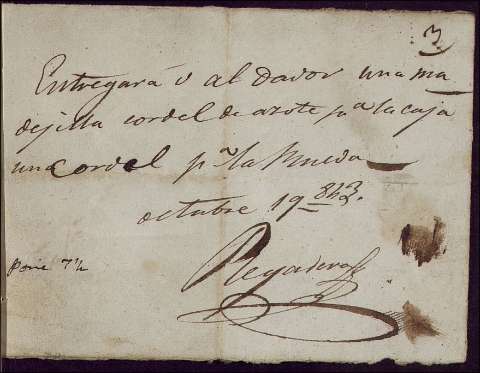 3
Entregará v al dador una ma
dejilla cordel de azote pª la caja
una cordel pª la Rueda
octubre 19 843.
Regadera